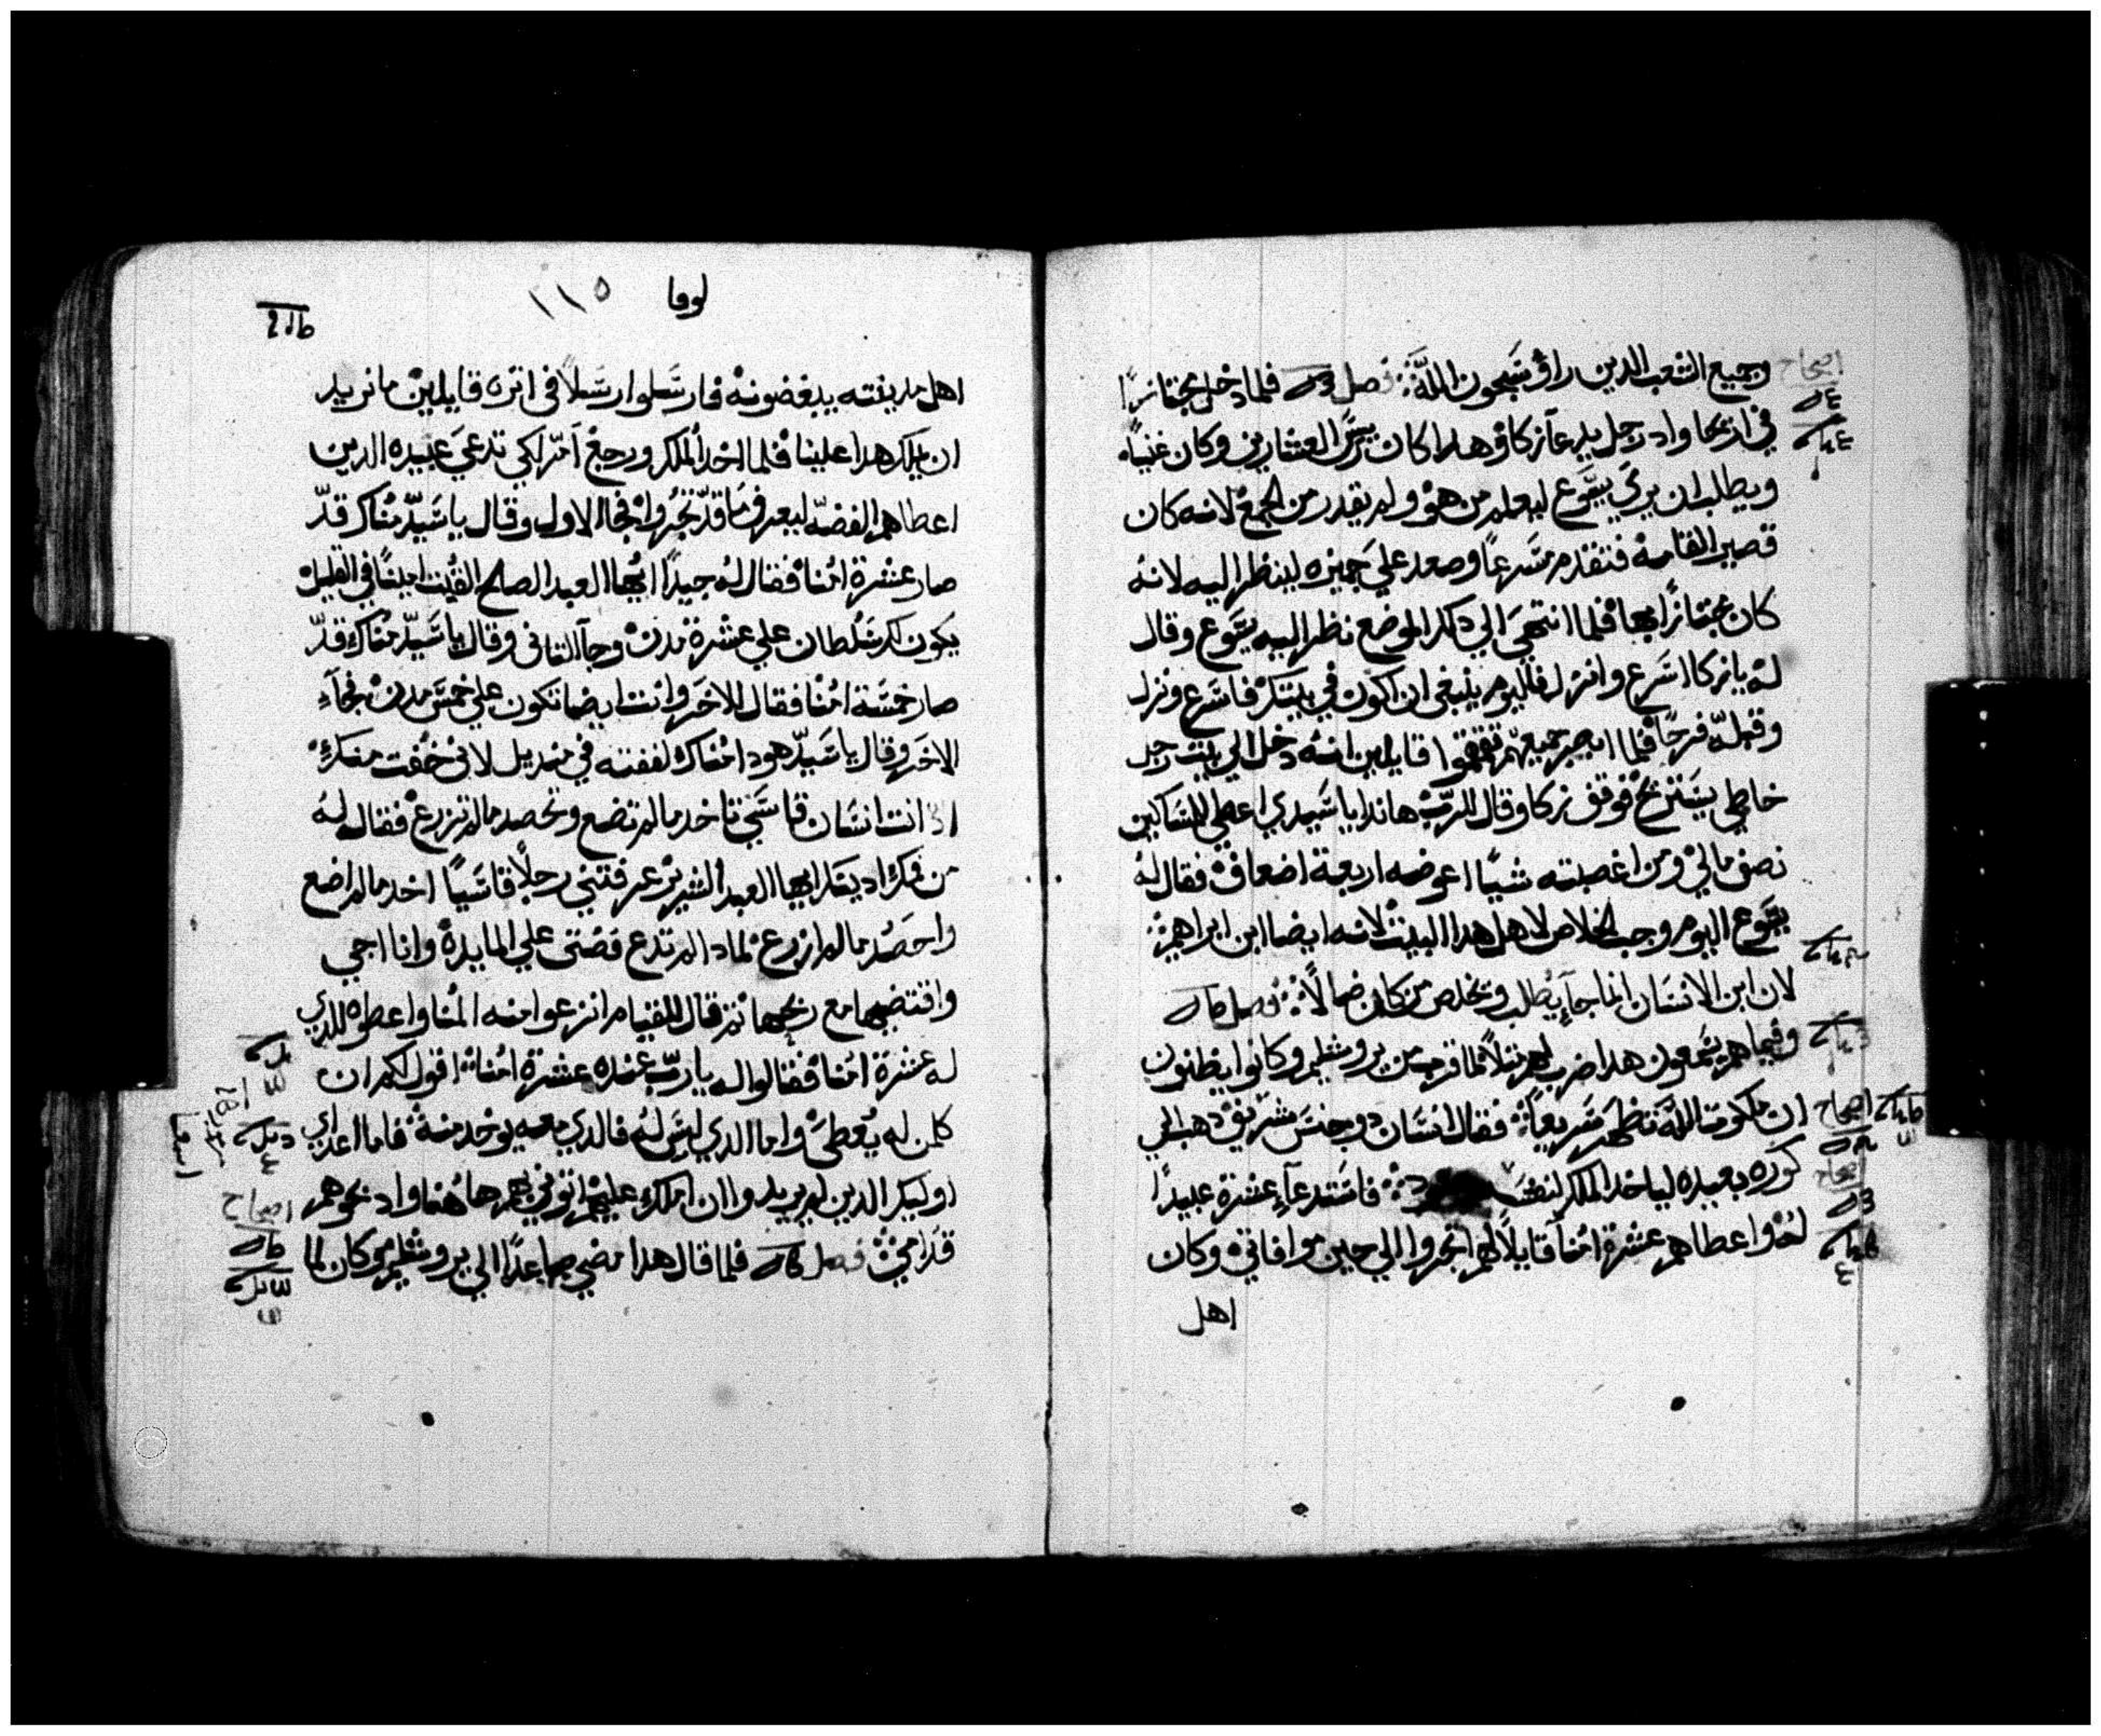 وجميع الشعب الدين راوْ يسَبحون اللَّه فصل فلما دخل مجتازًا
في اريحا وادا رجل يدعآ زكاوْ هدا كان ريسَ العشارين وكان غنيًاً
ويطلب ان يري يسَوع ليعلم من هوْ ولم يقدر من الجمعْ لانه كان
قصير القامه فتقدم مسَرعًا وصعد علي جميزه لينظر اليه لانهْ
كان مجتازًا بها فلما انتهيَ الي دلك الموضع نظر اليه يسَوع وقال
لهْ يا زكا اسَرع وانزل فاليوم ينبغي ان اكون في بيتكْ فاسَرع ونزل
وقبلهْ فرحًا فلما ابصر جميعهم تقمقموا قايلين انهْ دخل الي بيت رجل
خاطي يسَتريحْ فوقف زكا وقال للربْ هاندا يا سَيدي اعطي للمسَاكين
نصف ماليْ ومن اغصبته شيًا اعوضه اربعة اضعافْ فقال لهْ
يسَوع اليوم وجب الخلاص لاهل هدا البيتْ لانه ايضا ابن ابراهيمْ
لان ابن الانسَان انما جآ يطلب ويخلص من كان ضالاً فصل
وفيما هم يسَمعون هدا ضرب لهم مثلاً لما قرب من يروشليم وكانوا يظنون
ان ملكوت اللَّه تظهر سَريعًاْ فقال انسَان دو جنسَ شريفْ دهب الي
كوره بعيده لياخد الملك لنفسَه فاسَتدعآ عشرة عبيدًا
لهْ واعطاهم عشرة امْنآ قايلاً لهم اتجروا الي حين موافاتيْ وكان
اهل
لوقا ١١٥
اهل مدينته يبغضونهْ فارسَلوا رسَلاً في اتره قايلينْ ما نريد
ان يملك هدا علينا فلما اخد الملك ورجعْ امر لكي تدعيَ عبيده الدين
اعطاهم الفضه ليعرف ما قد تجرواْ فجا الاول وقال يا سَيدّ مْناك قدّ
صار عشرة امْنا فقال لهْ جيدًا ايها العبد الصالح الفيت امينًا في القليلْ
يكون لك سَلطان علي عشرة مدنْ وجآ التاني وقال يا سَيدّ مْناك قدّ
صار خمسَة امْنا فقال للاخرَ وانت ايضا تكون علي خمسَ مدنْ فجآء
الاخرَ وقال يا سَيدّ هودا امْناك لففته في منديل لاني خفت منكْ
اد انت انسَان قاسَي تاخد ما لم تضع وتحصد ما لم تزرعْ فقال لهْ
من فمك اديتك ايها العبد الشريرْ عرفتني رجلاً قاسَياً اخد ما لم اضع
واحصد ما لم ازرعْ لمادا لم تدع فضتي علي المايدةْ وانا اجي
واقتضيها مع ربحها تم قال للقيام انزعوا منه المْنا واعطوه للدي
له عشرة امْنا فقالوا له يا ربّ عنده عشرة امْنا اقول لكم ان
كلمن له يعطيَ واما الدي ليسَ لهْ فالدي معه يوخد منهْ فاما اعداي
اوليك الدين لم يريدوا ان املك عليهم اتوني بهم هاهْنا وادبحوهم
قدامي فصل فلما قال هدا مضي صاعدًا الي يروشليم كان لما